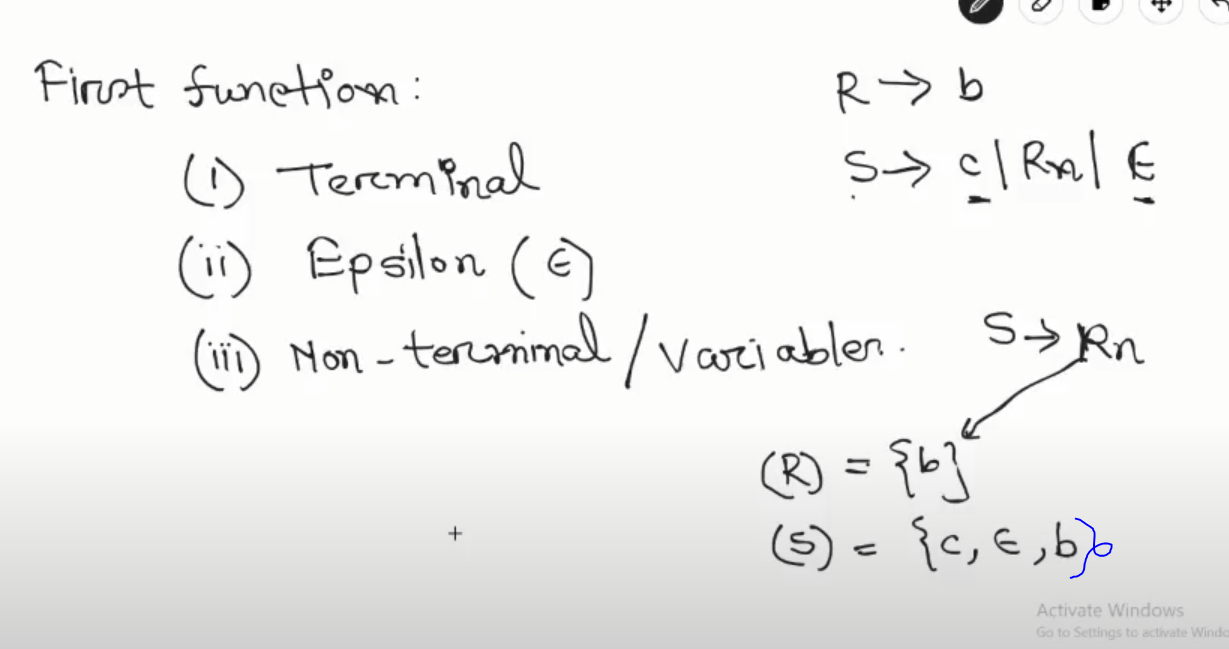 First function:
(i) Terminal
(ii) Epsilon (ϵ)
(iii) Non-terminal/Variables.
R → b
S → c | Rn | ϵ
S → Rn
(R) = {b}
(S) = {c, ϵ, b}
Activate Windows
Go to Settings to activate Windo